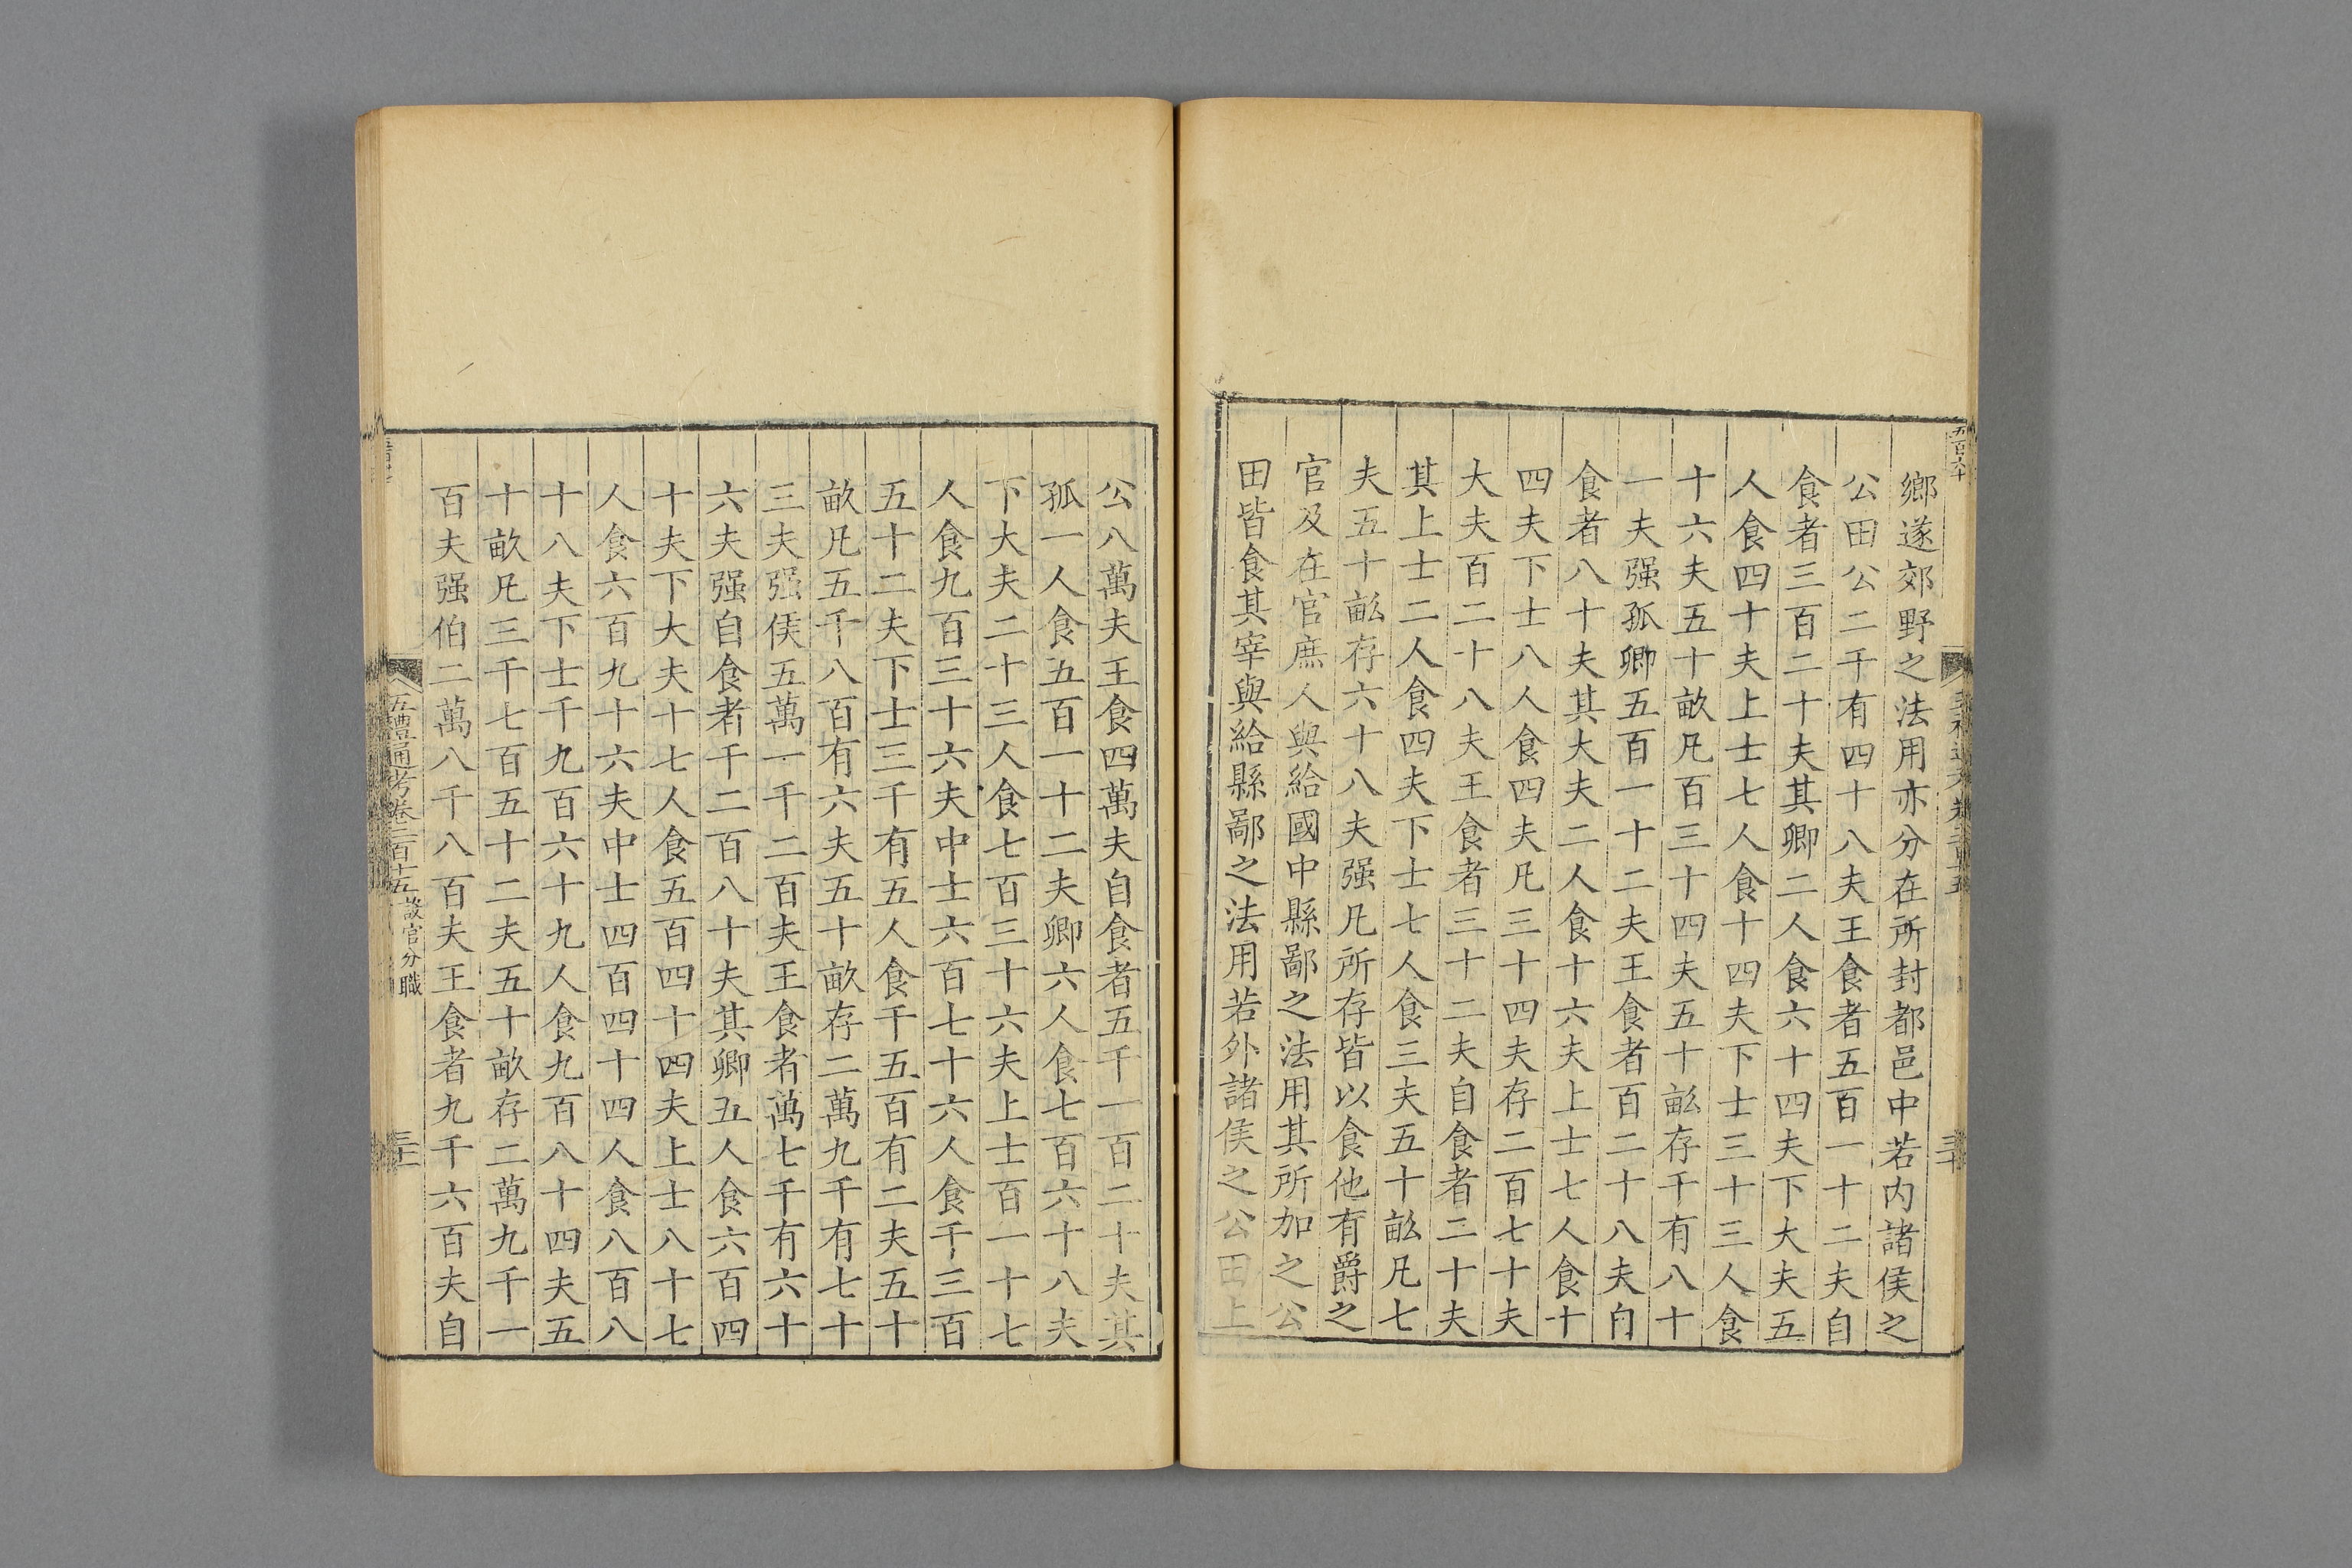 鄉遂郊野之法用亦分在所封都邑中若内諸侯之
公田公二千有四十八夫王食者五百一十二夫自
食者三百二十夫其卿二人食六十四夫下大夫五
人食四十夫上士七人食十四夫下士三十三人食
十六夫五十畝凡百三十四夫五十畝存千有八十
一夫强孤卿五百一十二夫王食者百二十八夫自
食者八十夫其大夫二人食十六夫上士七人食十
四夫下士八人食四夫凡三十四夫存二百七十夫
大夫百二十八夫王食者三十二夫自食者二十夫
其上士二人食四夫下士七人食三夫五十畝凡七
夫五十畝存六十八夫强凡所存皆以食他有爵之
官及在官庶人與給國中縣鄙之法用其所加之公
田皆食其宰與給縣鄙之法用若外諸侯之公田上
公八萬夫王食四萬夫自食者五千一百二十夫其
孤一人食五百一十二夫卿六人食七百六十八夫
下大夫二十三人食七百三十六夫上士百一十七
人食九百三十六夫中士六百七十六人食千三百
五十二夫下士三千有五人食千五百有二夫五十
畝凡五千八百有六夫五十畝存二萬九千有七十
三夫强侯五萬一千二百夫王食者萬七千有六十
六夫强自食者千二百八十夫其卿五人食六百四
十夫下大夫十七人食五百四十四夫上士八十七
人食六百九十六夫中士四百四十四人食八百八
十八夫下士千九百六十九人食九百八十四夫五
十畝凡三千七百五十二夫五十畝存二萬九千一
百夫强伯二萬八千八百夫王食者九千六百夫自
五禮通考卷二百十五 設官分職